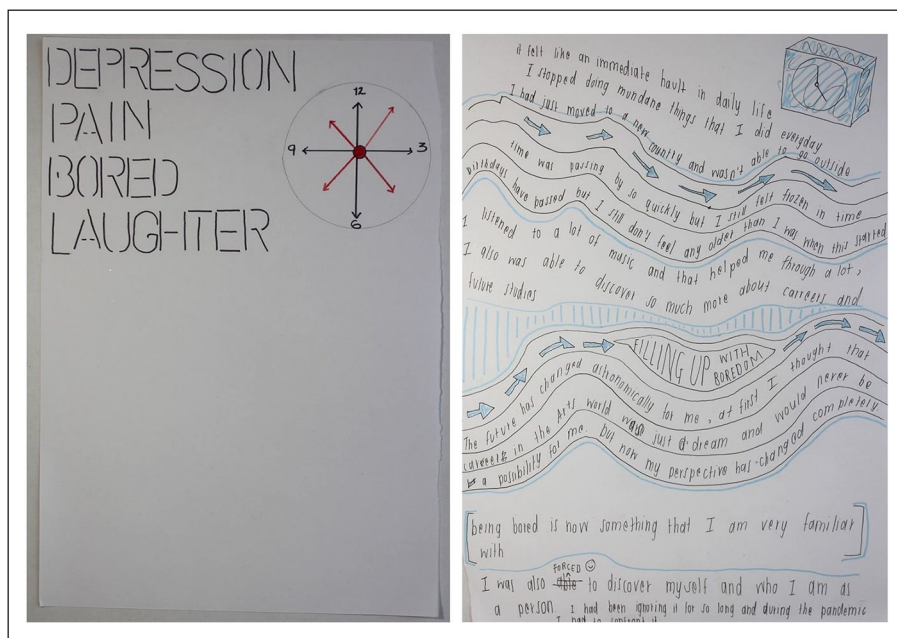 DEPRESSION
PAIN
BORED
LAUGHTER
12
9
3
6
it felt like an immediate hault in daily life
I stopped doing mundane things that I did everyday
I had just moved to a new country and wasn't able to go outside
time was passing by so quickly but I still felt frozen in time
birthdays have passed but I still don't feel any older than I was when this started
I listened to a lot of music and that helped me through a lot,
I also was able to discover so much more about carreers and
future studies
FILLING UP WITH
BOREDOM
The future has changed astronomically for me, at first I thought that
careers in the Arts world was just a dream and would never be
a possibility for me. but now my perspective has changed completely
[being bored is now something that I am very familiar
with]
FORCED
I was also able to discover myself and who I am as
a person. I had been ignoring it for so long and during the pandemic
I had to confront it